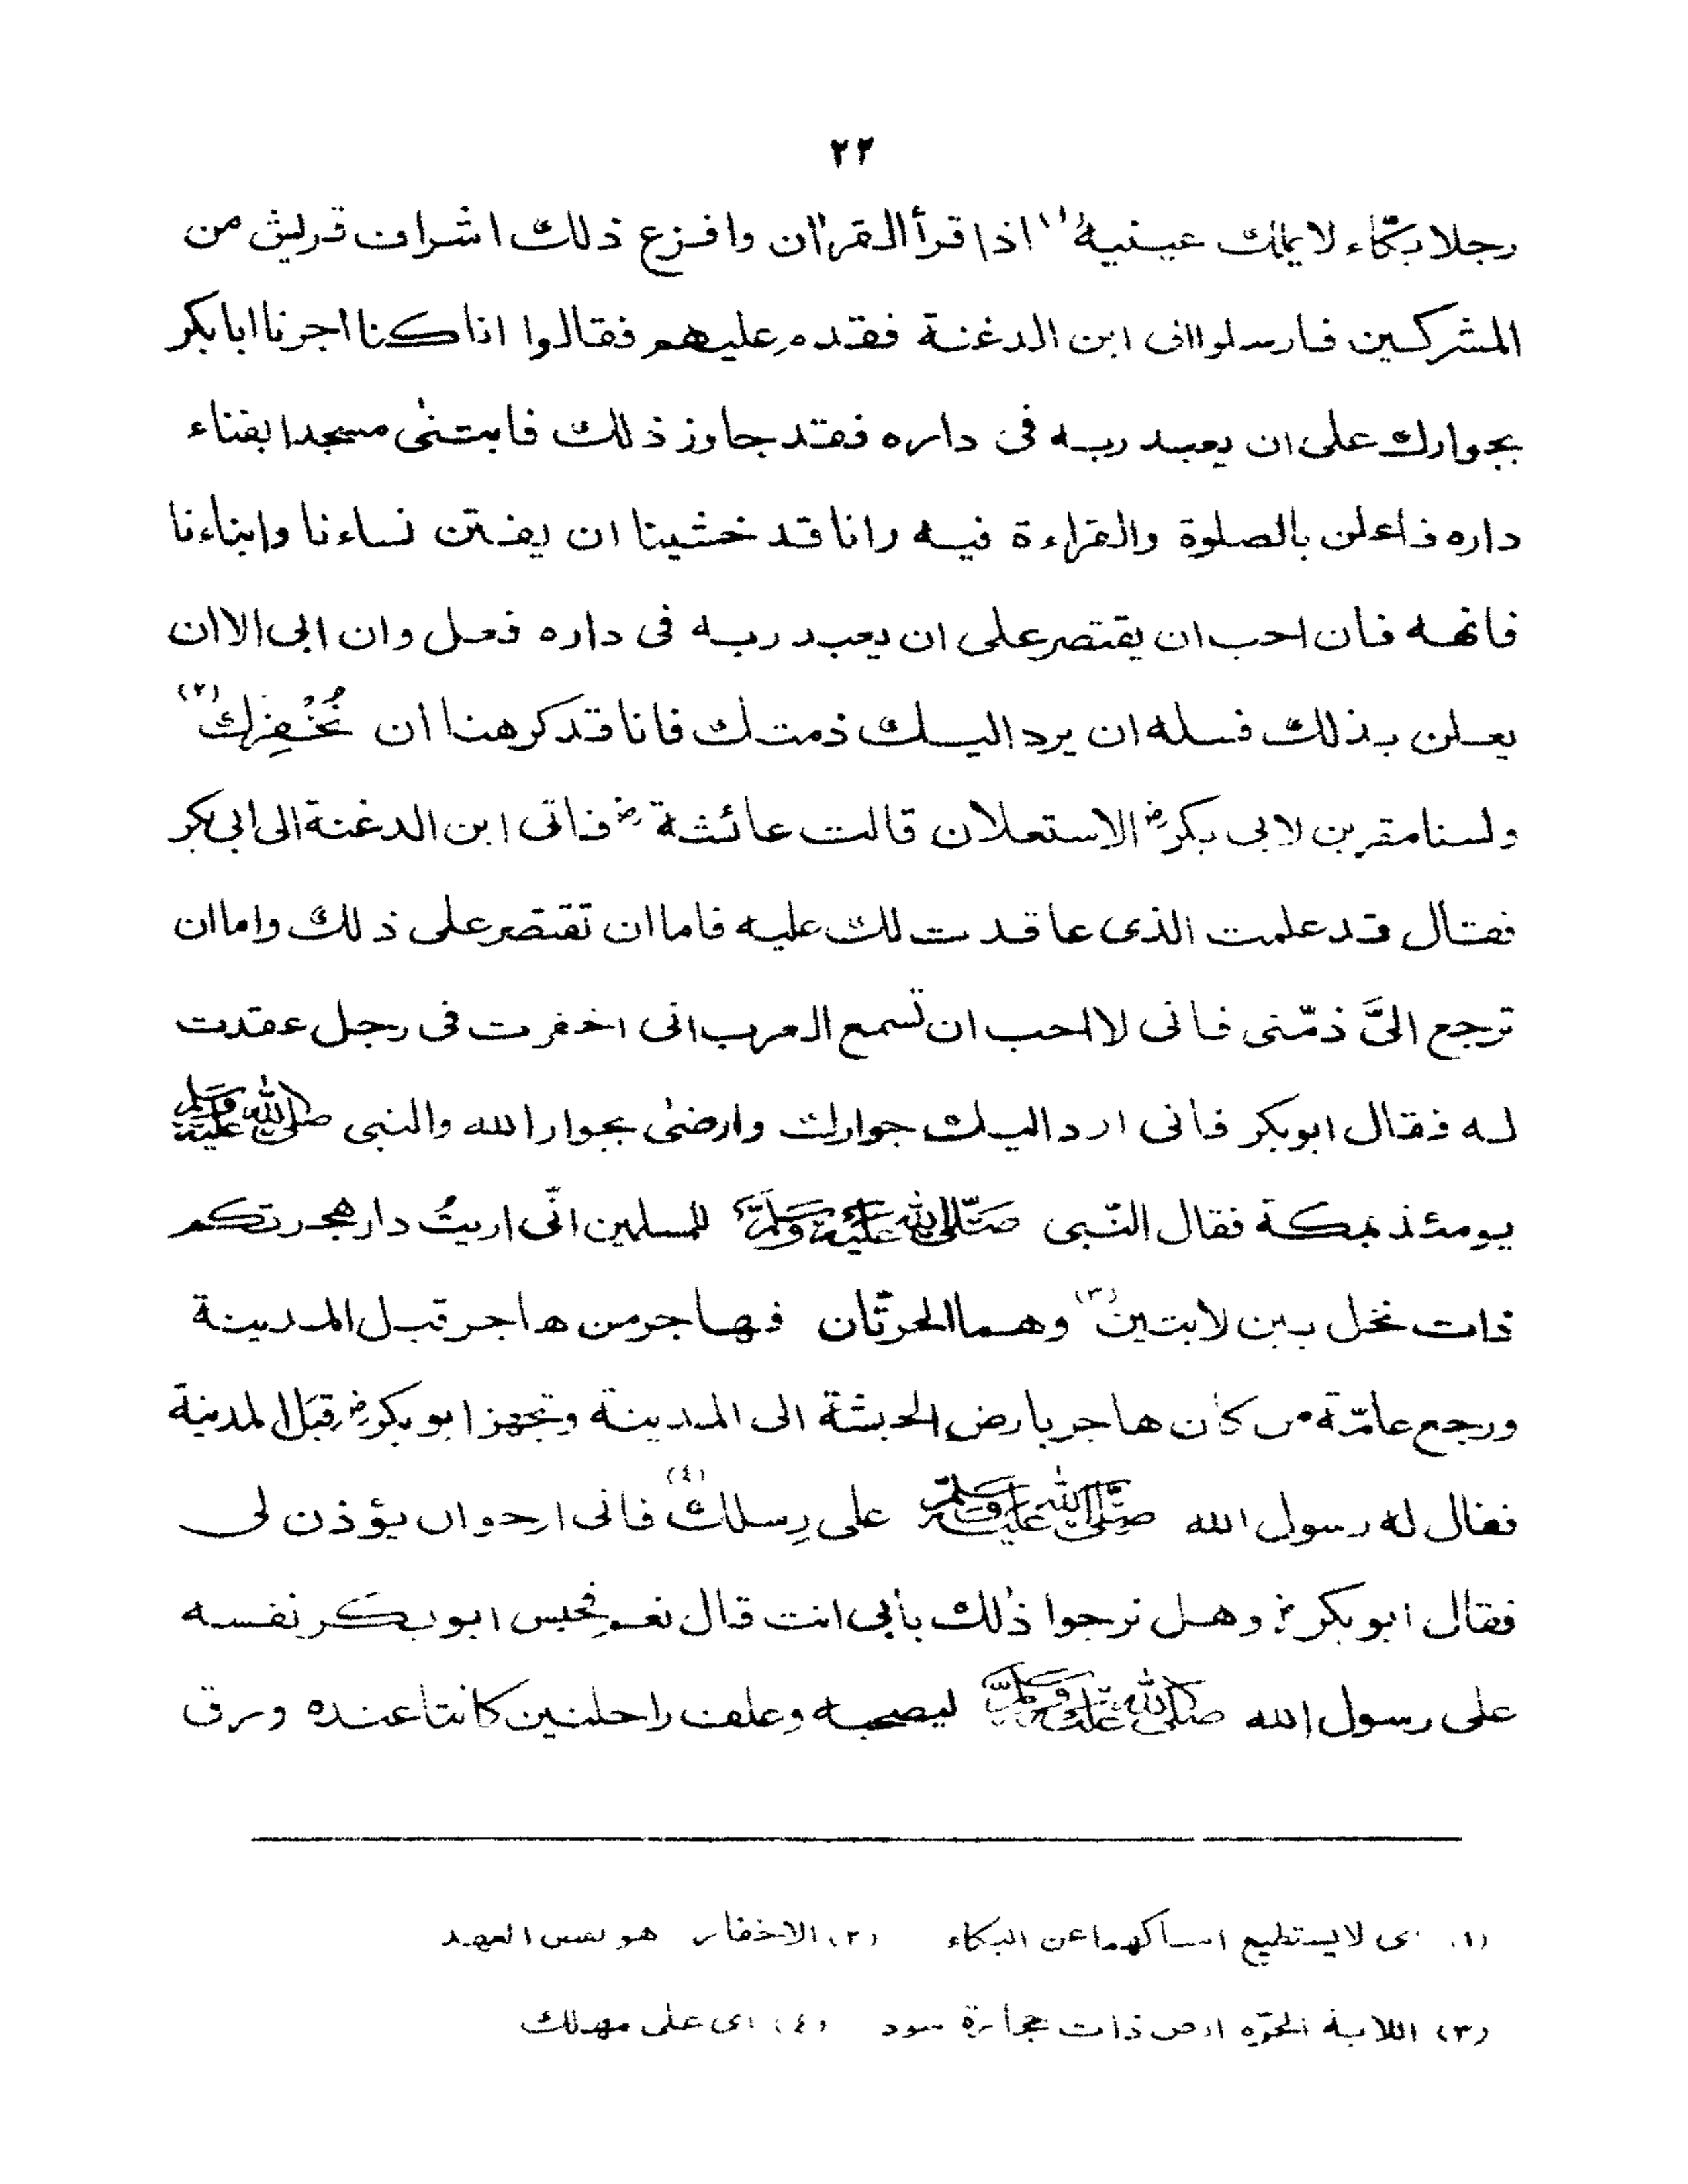 ٢٣
رجلا بكّاء لا يملك عينيه (١) اذا قرأ القراٰن وافزع ذلك اشراف قريش من
المشركين فارسلوا الى ابن الدغنة فقدم عليهم فقالوا انا كنا اجرنا ابا بكر
بجوارك على ان يعبد ربه فى داره فقد جاوز ذلك فابتنىٰ مسجدا بفناء
داره فاعلن بالصلوة والقراءة فيه وانا قد خشينا ان يفتن نساءنا وابناءنا
فانهه فان احب ان يقتصر على ان يعبد ربه فى داره فعل وان ابى الا ان
يعلن بذلك فسله ان يرد اليك ذمتك فانا قد كرهنا ان نُخْفِرك (٢)
ولسنا مقرين لابى بكرؓ الاستعلان قالت عائشةؓ فاتى ابن الدغنة الى ابى بكر
فقال قد علمت الذى عاقدت لك عليه فاما ان تقتصر على ذلك واما ان
ترجع الىَّ ذمّتى فانى لا احب ان تسمع العرب انى اخفرت فى رجل عقدت
له فقال ابوبكر فانى ارد اليك جوارك وارضىٰ بجوار الله والنبى صلى الله عليه وسلم
يومئذ بمكة فقال النّبى صلى الله عليه وسلم للمسلمين انّى اريتُ دار هجرتكم
ذات نخل بين لابتين (٣) وهما الحرّتان فهاجر من هاجر قبل المدينة
ورجع عامّة من كان هاجر بارض الحبشة الى المدينة وتجهز ابو بكرؓ قِبَل المدينة
فقال له رسول الله صلى الله عليه وسلم على رِسلك (٤) فانى ارجو ان يؤذن لى
فقال ابو بكرؓ وهل نرجوا ذٰلك بأبى انت قال نعم فحبس ابو بكر نفسه
على رسول الله صلى الله عليه وسلم ليصحبه وعلف راحلتين كانتا عنده ورق
(١) اى لا يستطيع امساكهما عن البكاء (٢) الاخفار هو نقض العهد
(٣) اللابة الحرّه ارض ذات حجارة سود (٤) اى على مهلك